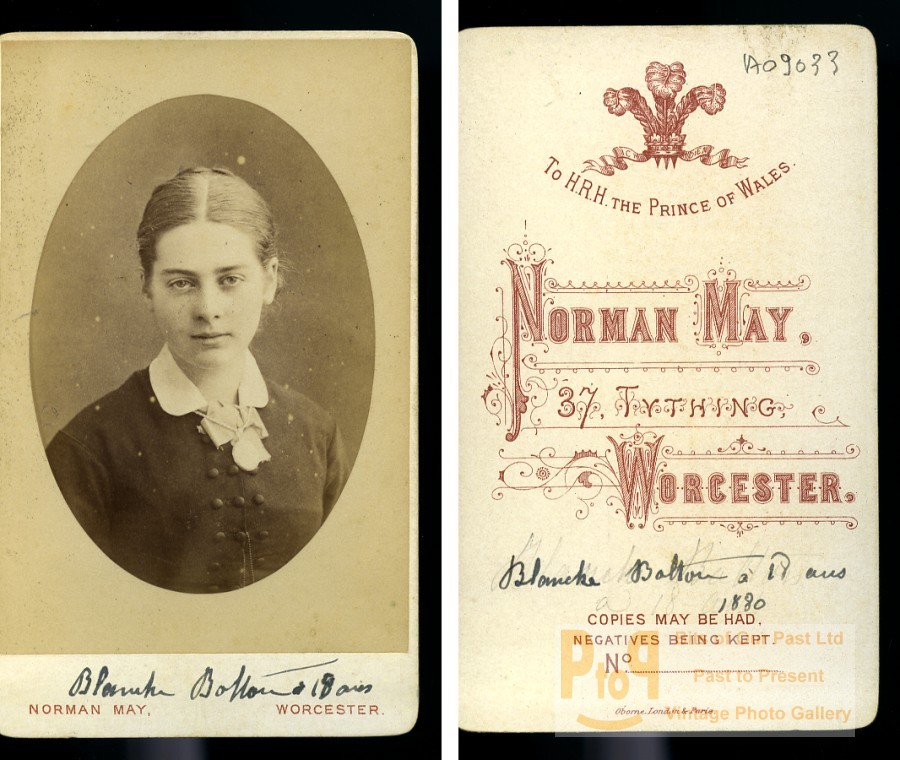 Blanche Bolton à 18 ans
NORMAN MAY, WORCESTER.
A09033
TO H.R.H. THE PRINCE OF WALES.
NORMAN MAY,
37, TYTHING,
WORCESTER.
Blanche Bolton à 18 ans
1880
COPIES MAY BE HAD,
NEGATIVES BEING KEPT.
Nº
Past Ltd
PtoP
Past to Present
Oborne, London & Paris.
Vintage Photo Gallery